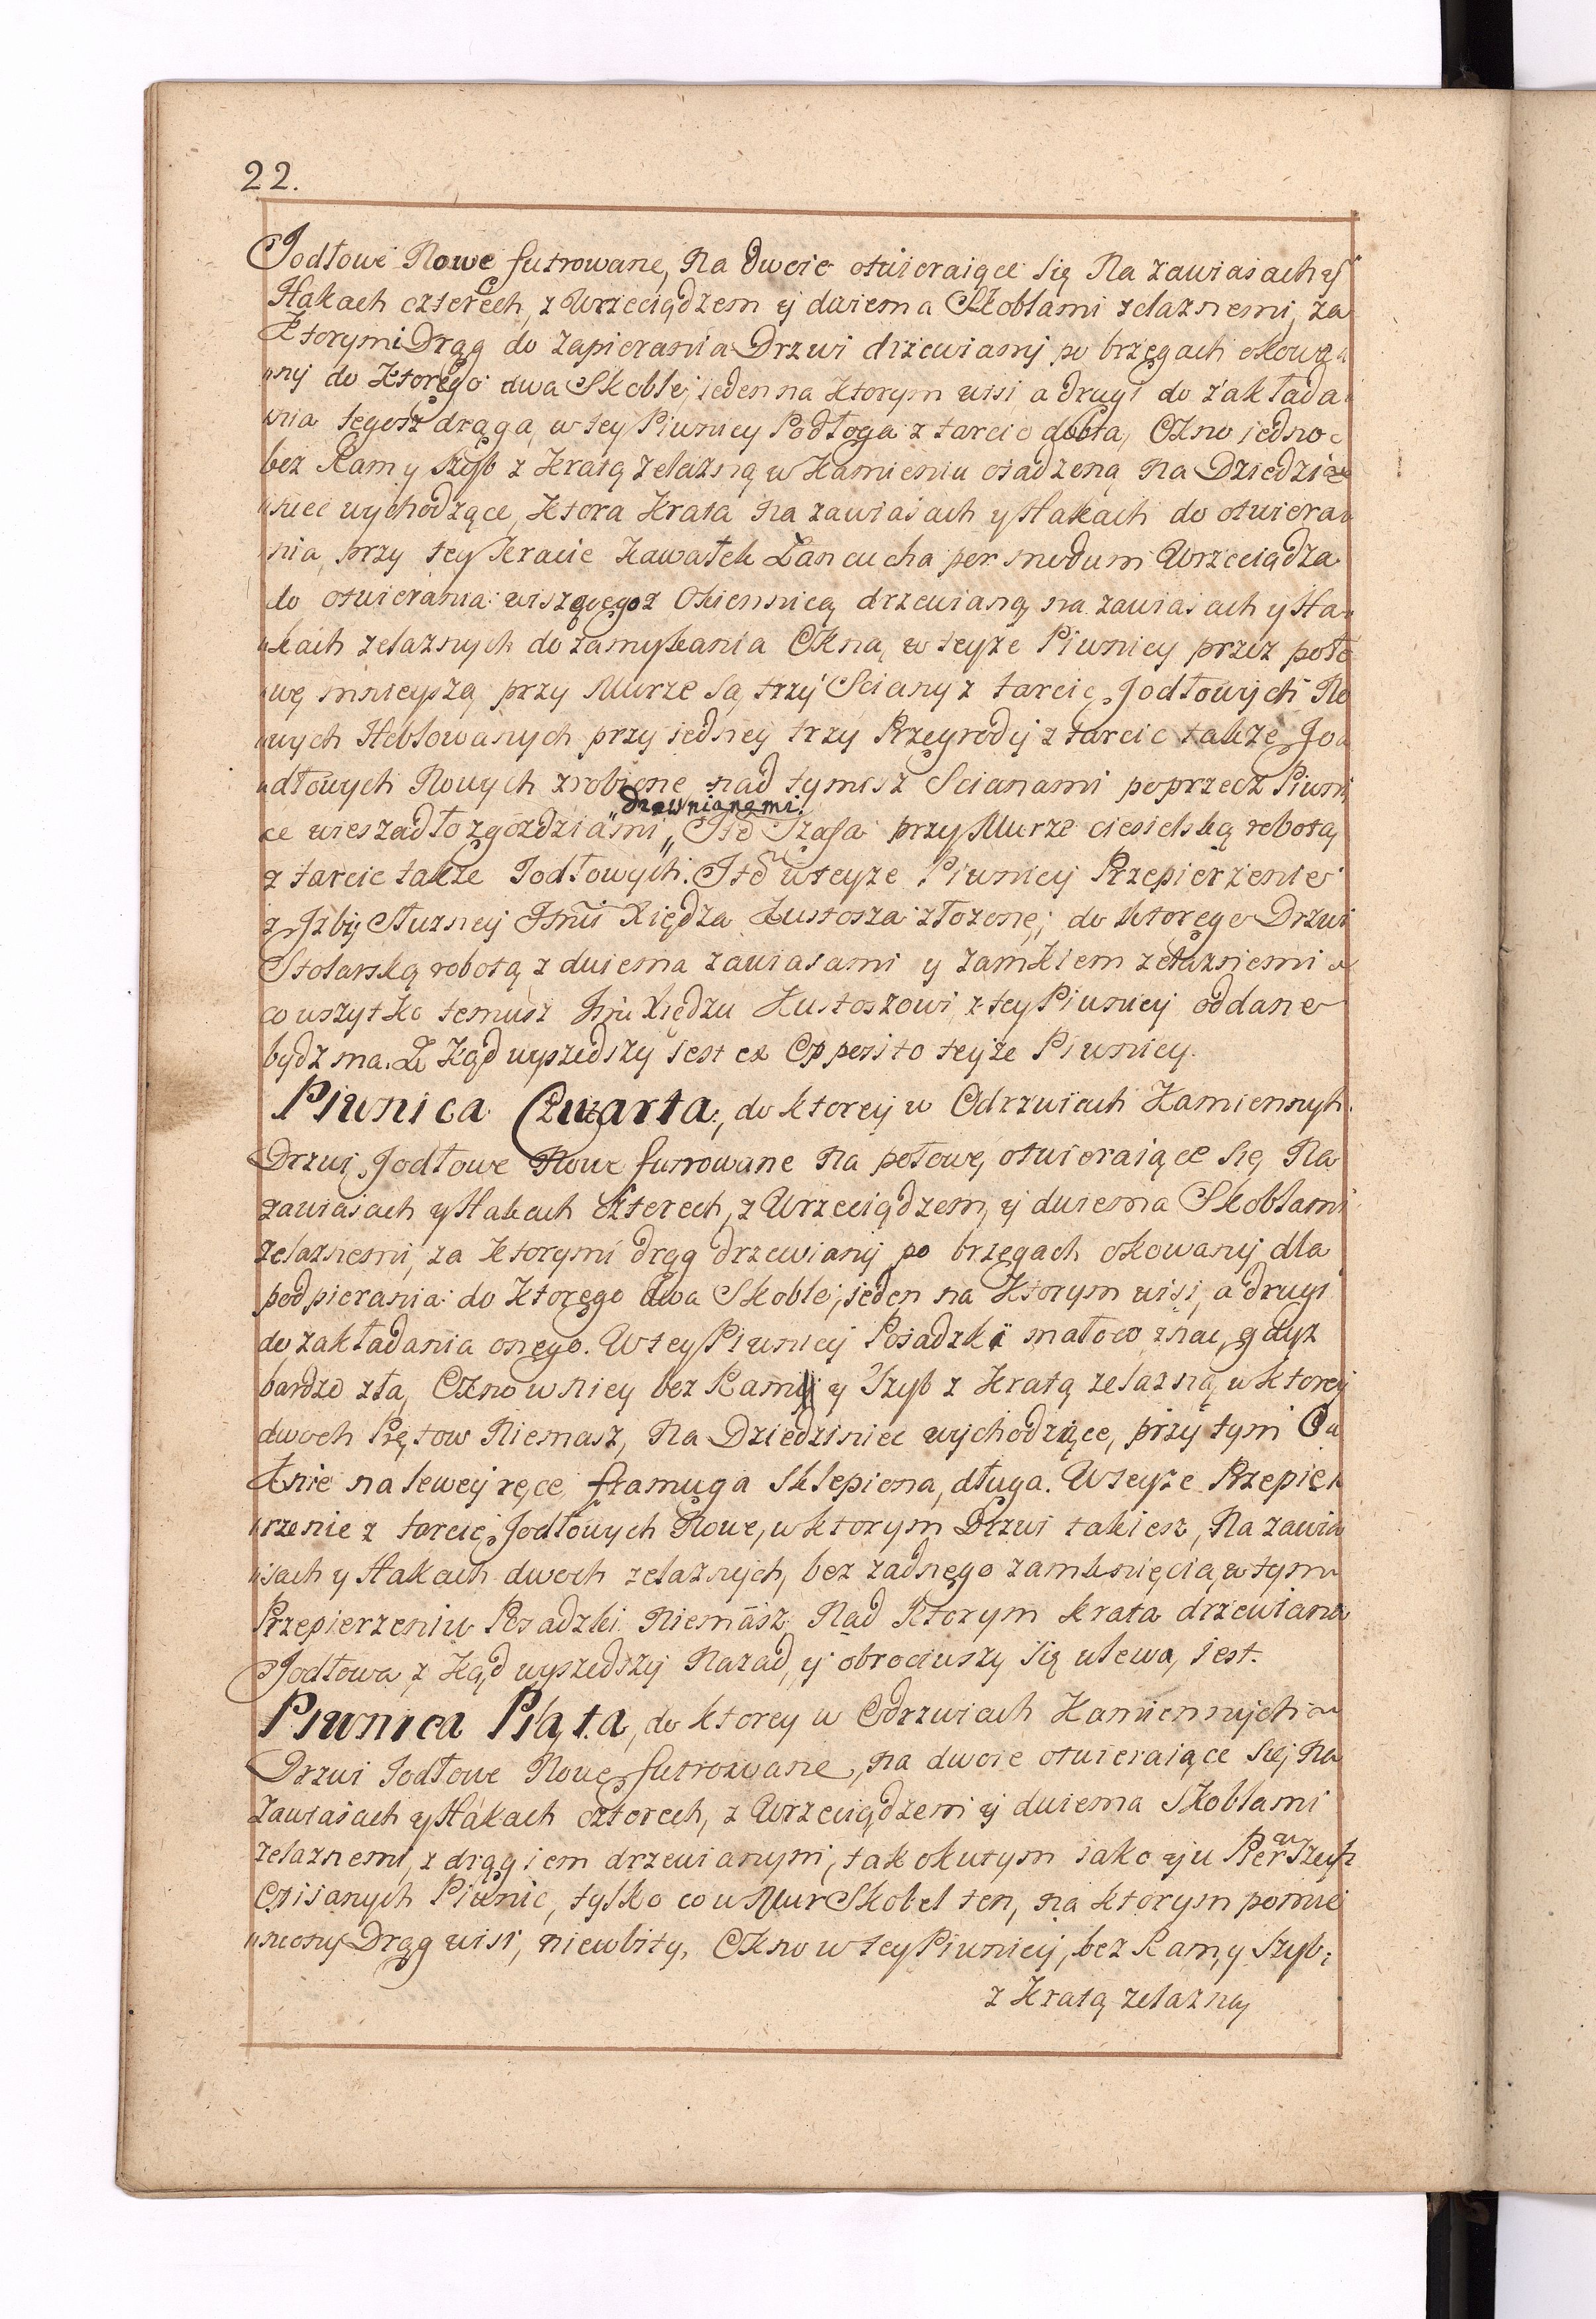 22.
Jodłowe Nowe futrowane, Na dwoie otwieraiące się Na zawiasach y
Hakach czterech, z Wrzeciądzem y dwiema Skoblami zelaznemi, za
Ktorymi Drąg do zapierania Drzwi drzewiany po brzegach okowa
ny do Ktorego dwa Skoble, ieden na Ktorym wisi a drugi do zakłada
nia tegosz drąga, w tey Piwnicy Podłoga z tarcic dobra, Okno iedno
bez Ram y Szyb z Kratą zelazną w Kamieniu osadzoną na Dziedzi
niec wychodzące, Ktora Krata na zawiasach y Hakach do otwiera
nia, przy tey Kracie Kawałek Łancucha per modum Wrzeciądza
do otwierania wiszącego z Okiennicą drzewianą na zawiasach y Ha
kach zelaznych do zamykania Okna, w teyze Piwnicy przez poło
wę mnieyszą przy Murze są trzy Sciany z tarcic Jodłowych No
wych Heblowanych przy iedney trzy Przegrody z tarcic także Jo
dłowych Nowych zrobione, nad tymisz Scianami poprzecz Piwni
ce wieszadło z gozdziami drewnianemi. Ite Szafa przy Murze ciesielską robotą
z tarcic także Jodłowych. Ite w teyze Piwnicy Przepierzenie
z Izby Stuzney Jmci Xiędza Kustosza złozone; do ktorego Drzwi
Stolarską robotą z dwiema zawiasami y zamkiem zelaznemi
co wszytko temusz Jmci Xiędzu Kustoszowi z tey Piwnicy oddane
bydz ma. Z Kąd wyszedszy iest ex Opposito teyze Piwnicy.
Piwnica Czwarta, do ktorey w Odrzwiach Kamiennych
Drzwi Jodłowe Nowe futrowane Na połowę otwieraiące się Na
zawiasach y Hakach czterech, z Wrzeciądzem, y dwiema Skoblami
zelaznemi, za Ktorymi drąg drzewiany po brzegach okowany dla
podpierania do Ktorego dwa Skoble, ieden na Ktorym wisi, a drugi
do zakładania onego. W tey Piwnicy Posadzki mało co znac, gdyz
bardzo zła, Okno w niey bez Ramy y Szyb z Kratą zelazną w ktorey
dwoch Prętow Niemasz, Na Dziedziniec wychodzące, przy tym O
knie na lewey ręce framuga Sklepiona, długa. W teyze Przepie
rzenie z tarcic Jodłowych Nowe, w ktorym Drzwi takiesz, Na zawia
sach y Hakach dwoch zelaznych, bez zadnego zamknięcia, w tym
Przepierzeniu Posadzki Niemasz Nad Ktorym krata drzewiana
Jodłowa, z Kąd wyszedszy Nazad, y obrociwszy się w lewo, iest.
Piwnica Piąta, do ktorey w Odrzwiach Kamiennych
Drzwi Jodłowe Nowe futrowane, na dwoie otwieraiące się Na
Zawiasach y Hakach czterech, z Wrzeciądzem y dwiema Skoblami
zelaznemi, z drągiem drzewianym, tak okutym iako y u Pierwszych
Opisanych Piwnic, tylko co w Mur Skobel ten, na ktorym pomie
niony Drąg wisi, niewbity. Okno w tey Piwnicy, bez Ram, y Szyb;
z Kratą zelazną